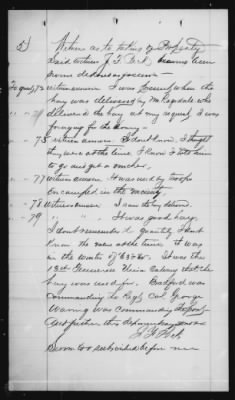 5)
Return as to taking of Property
Said witness J. F. Peck having been
sworn deposes
To ques 73 witness answers. I was present when the
hay was delivered by Mr Ragsdale who
delivered the hay at my request I was
foraging for the army -
" " 75 witness answers. I dont know. I thought
they were at the time. I know I told him
to go and get a voucher,
" " 77 witness answers. It was used by troops
encamped in the vicinity,
" " 78 witness answers I can state
" " 79 " " It was good hay.
I dont remember quantity I dont
know the value at the time it was
in the winter of 63 & 64. It was the
13th Tennessee Cavalry that the
hay was used for. Bradford was
commanding the Regt Col George
Waring was commanding
and further this deponent
J. F. Peck
Sworn to & subscribed before me